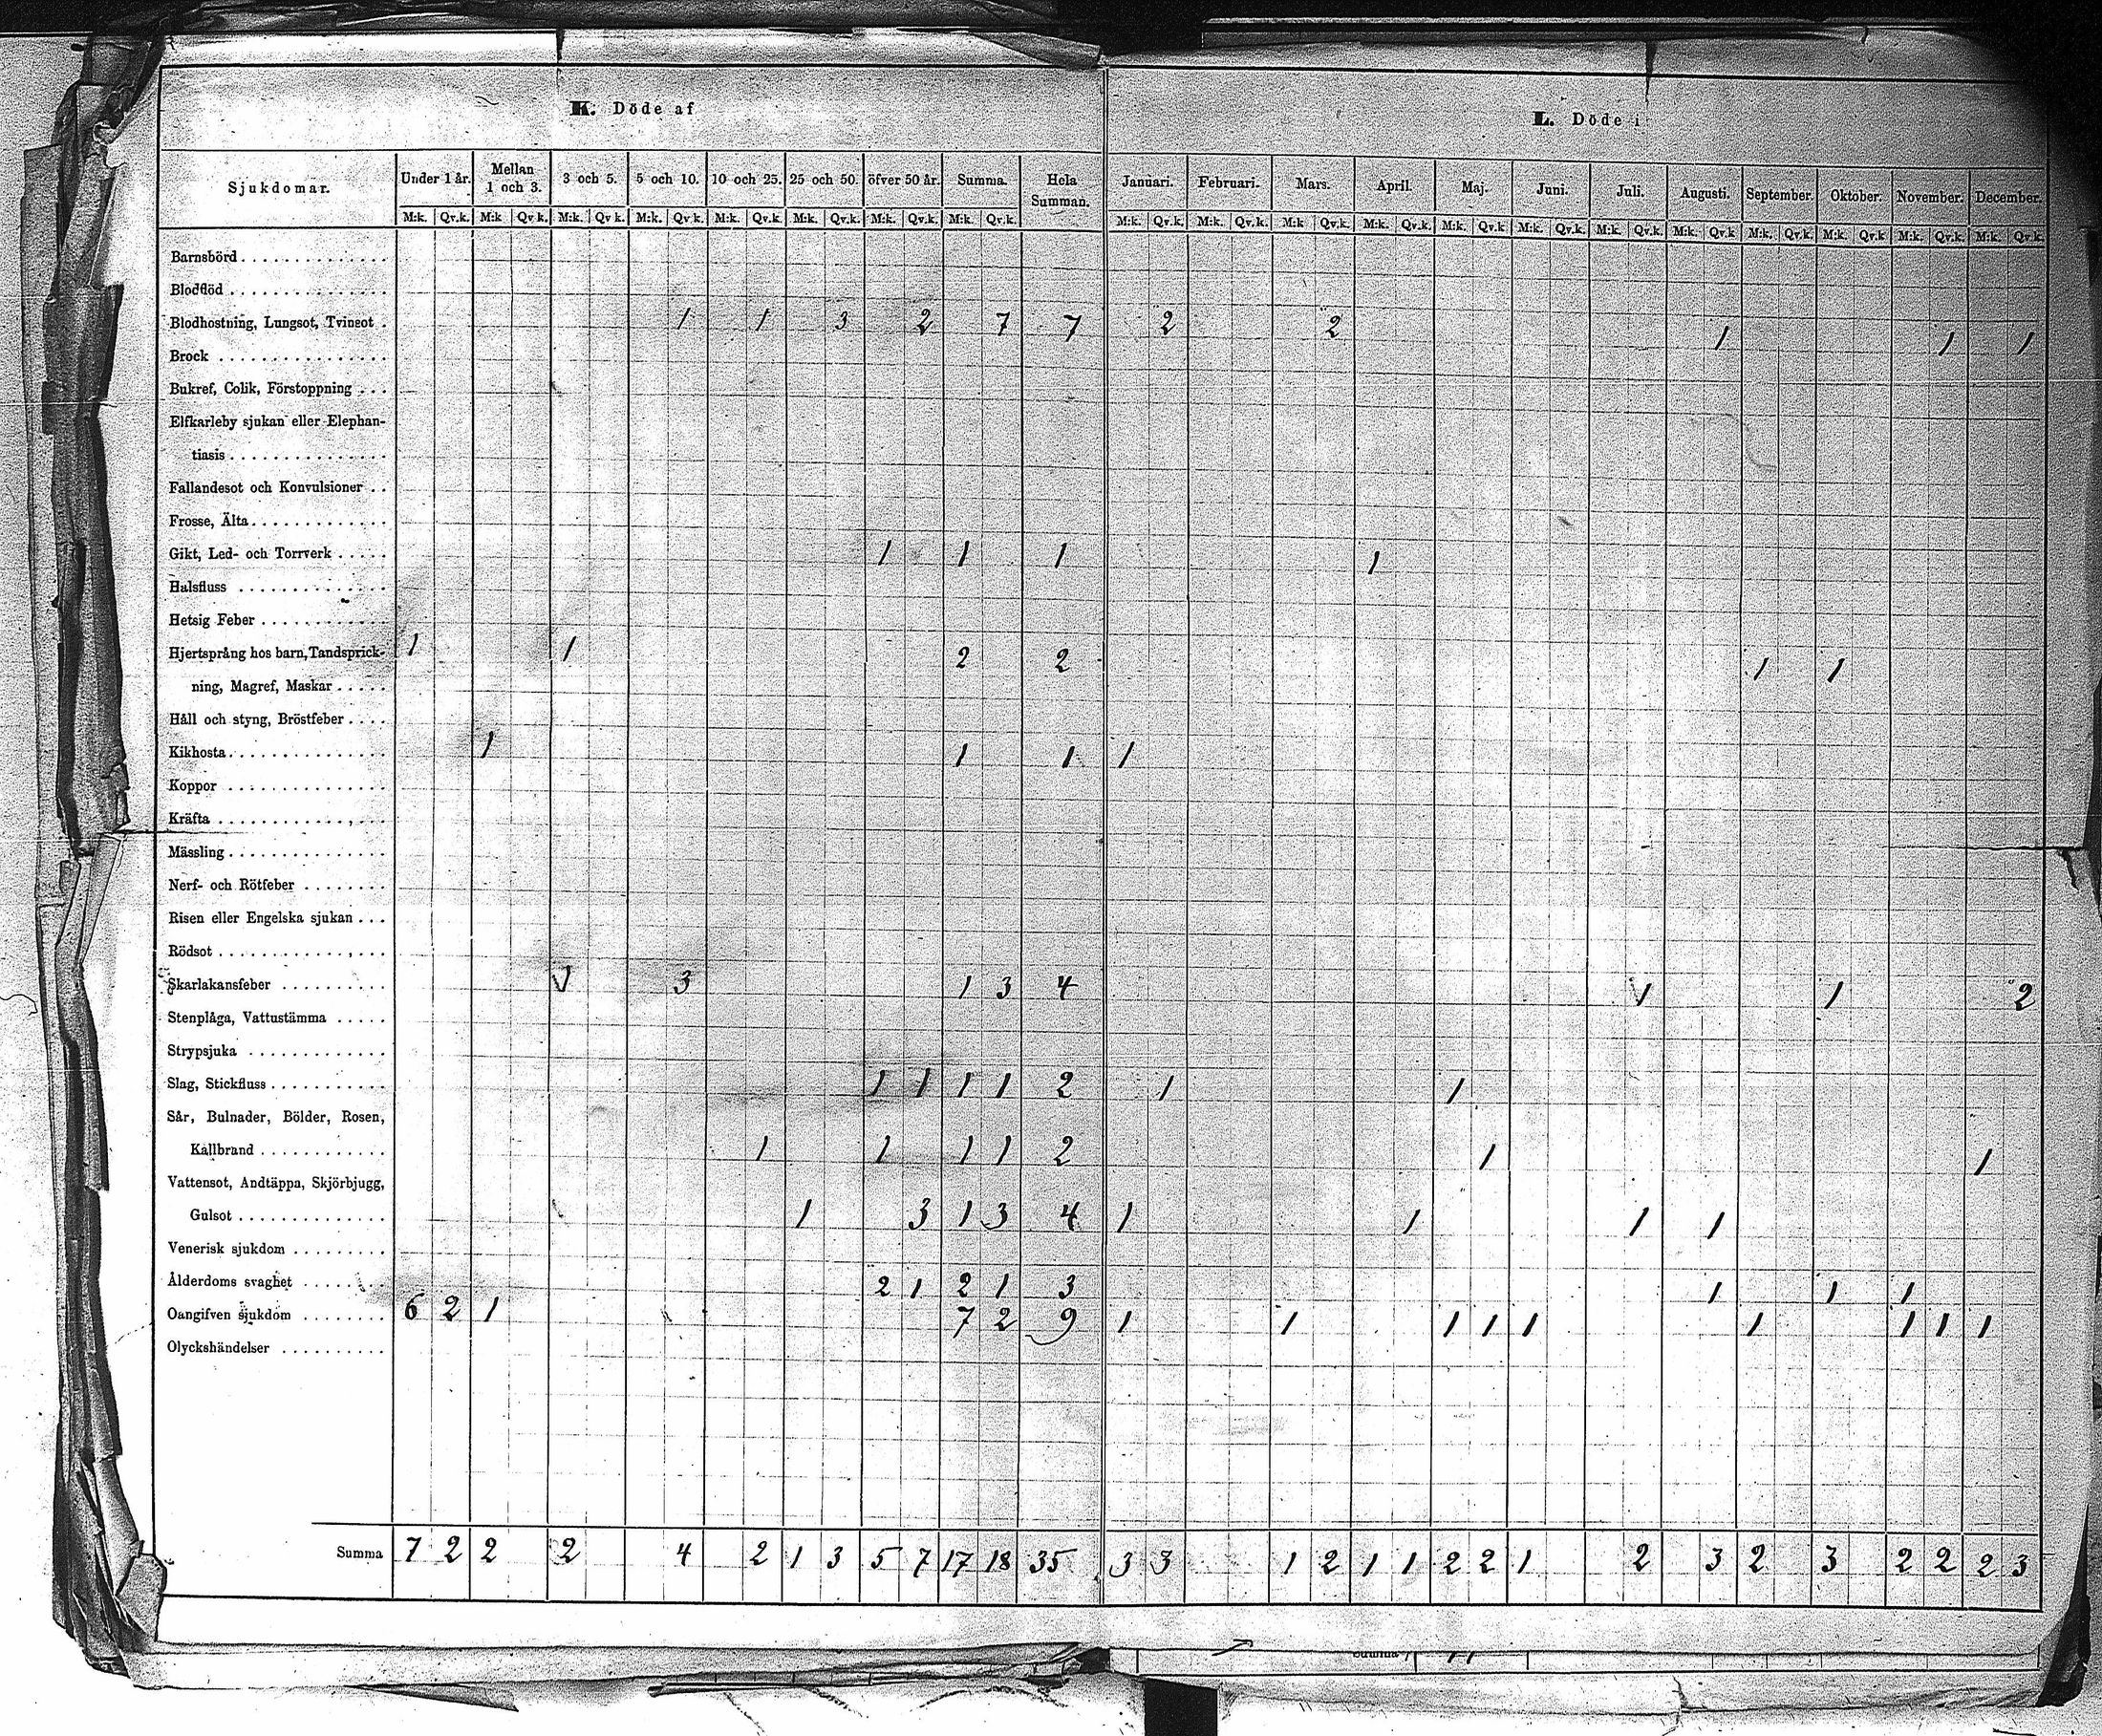 K. Döde af
L. Döde i
Sjukdomar. Under 1 år. Mellan 1 och 3. 3 och 5. 5 och 10. 10 och 25. 25 och 50. öfver 50 år. Summa. Hela Summan. Januari. Februari. Mars. April. Maj. Juni. Juli. Augusti. September. Oktober. November. December.
M:k. Qv.k. M:k Qv k. M:k. Qv k. M:k. Qv k. M:k. Qv.k. M:k. Qv.k. M:k. Qv.k. M:k. Qv.k. M:k. Qv.k. M:k. Qv.k. M:k Qv.k. M:k. Qv.k. M:k. Qv.k M:k. Qv.k. M:k. Qv.k. M:k. Qv.k M:k. Qv.k M:k. Qv.k M:k. Qv.k. M:k. Qv.k.
Barnsbörd
Blodflöd
Blodhostning, Lungsot, Tvinsot . 1 1 3 2 7 7 2 2 1 1 1
Brock
Bukref, Colik, Förstoppning . . .
Elfkarleby sjukan eller Elephan-
tiasis
Fallandesot och Konvulsioner . .
Frosse, Älta
Gikt, Led- och Torrverk . . . . . 1 1 1 1
Halsfluss
Hetsig Feber
Hjertsprång hos barn, Tandsprick- 1 1 2 2 1 1
ning, Magref, Maskar . . . . .
Håll och styng, Bröstfeber . . . .
Kikhosta 1 1 1 1
Koppor
Kräfta
Mässling
Nerf- och Rötfeber
Risen eller Engelska sjukan . . .
Rödsot
Skarlakansfeber 3 1 3 4 1 2
Stenplåga, Vattustämma . . . . .
Strypsjuka
Slag, Stickfluss 1 1 1 1 2 1 1
Sår, Bulnader, Bölder, Rosen,
Kallbrand 1 1 1 1 2 1 1
Vattensot, Andtäppa, Skjörbjugg,
Gulsot 1 3 1 3 4 1 1 1 1
Venerisk sjukdom
Ålderdoms svaghet 2 1 2 1 3 1 1 1
Oangifven sjukdom 6 2 1 7 2 9 1 1 1 1 1 1 1 1 1
Olyckshändelser
Summa 7 2 2 2 4 2 1 3 5 7 17 18 35 3 3 1 2 1 1 2 2 1 2 3 2 3 2 2 2 3